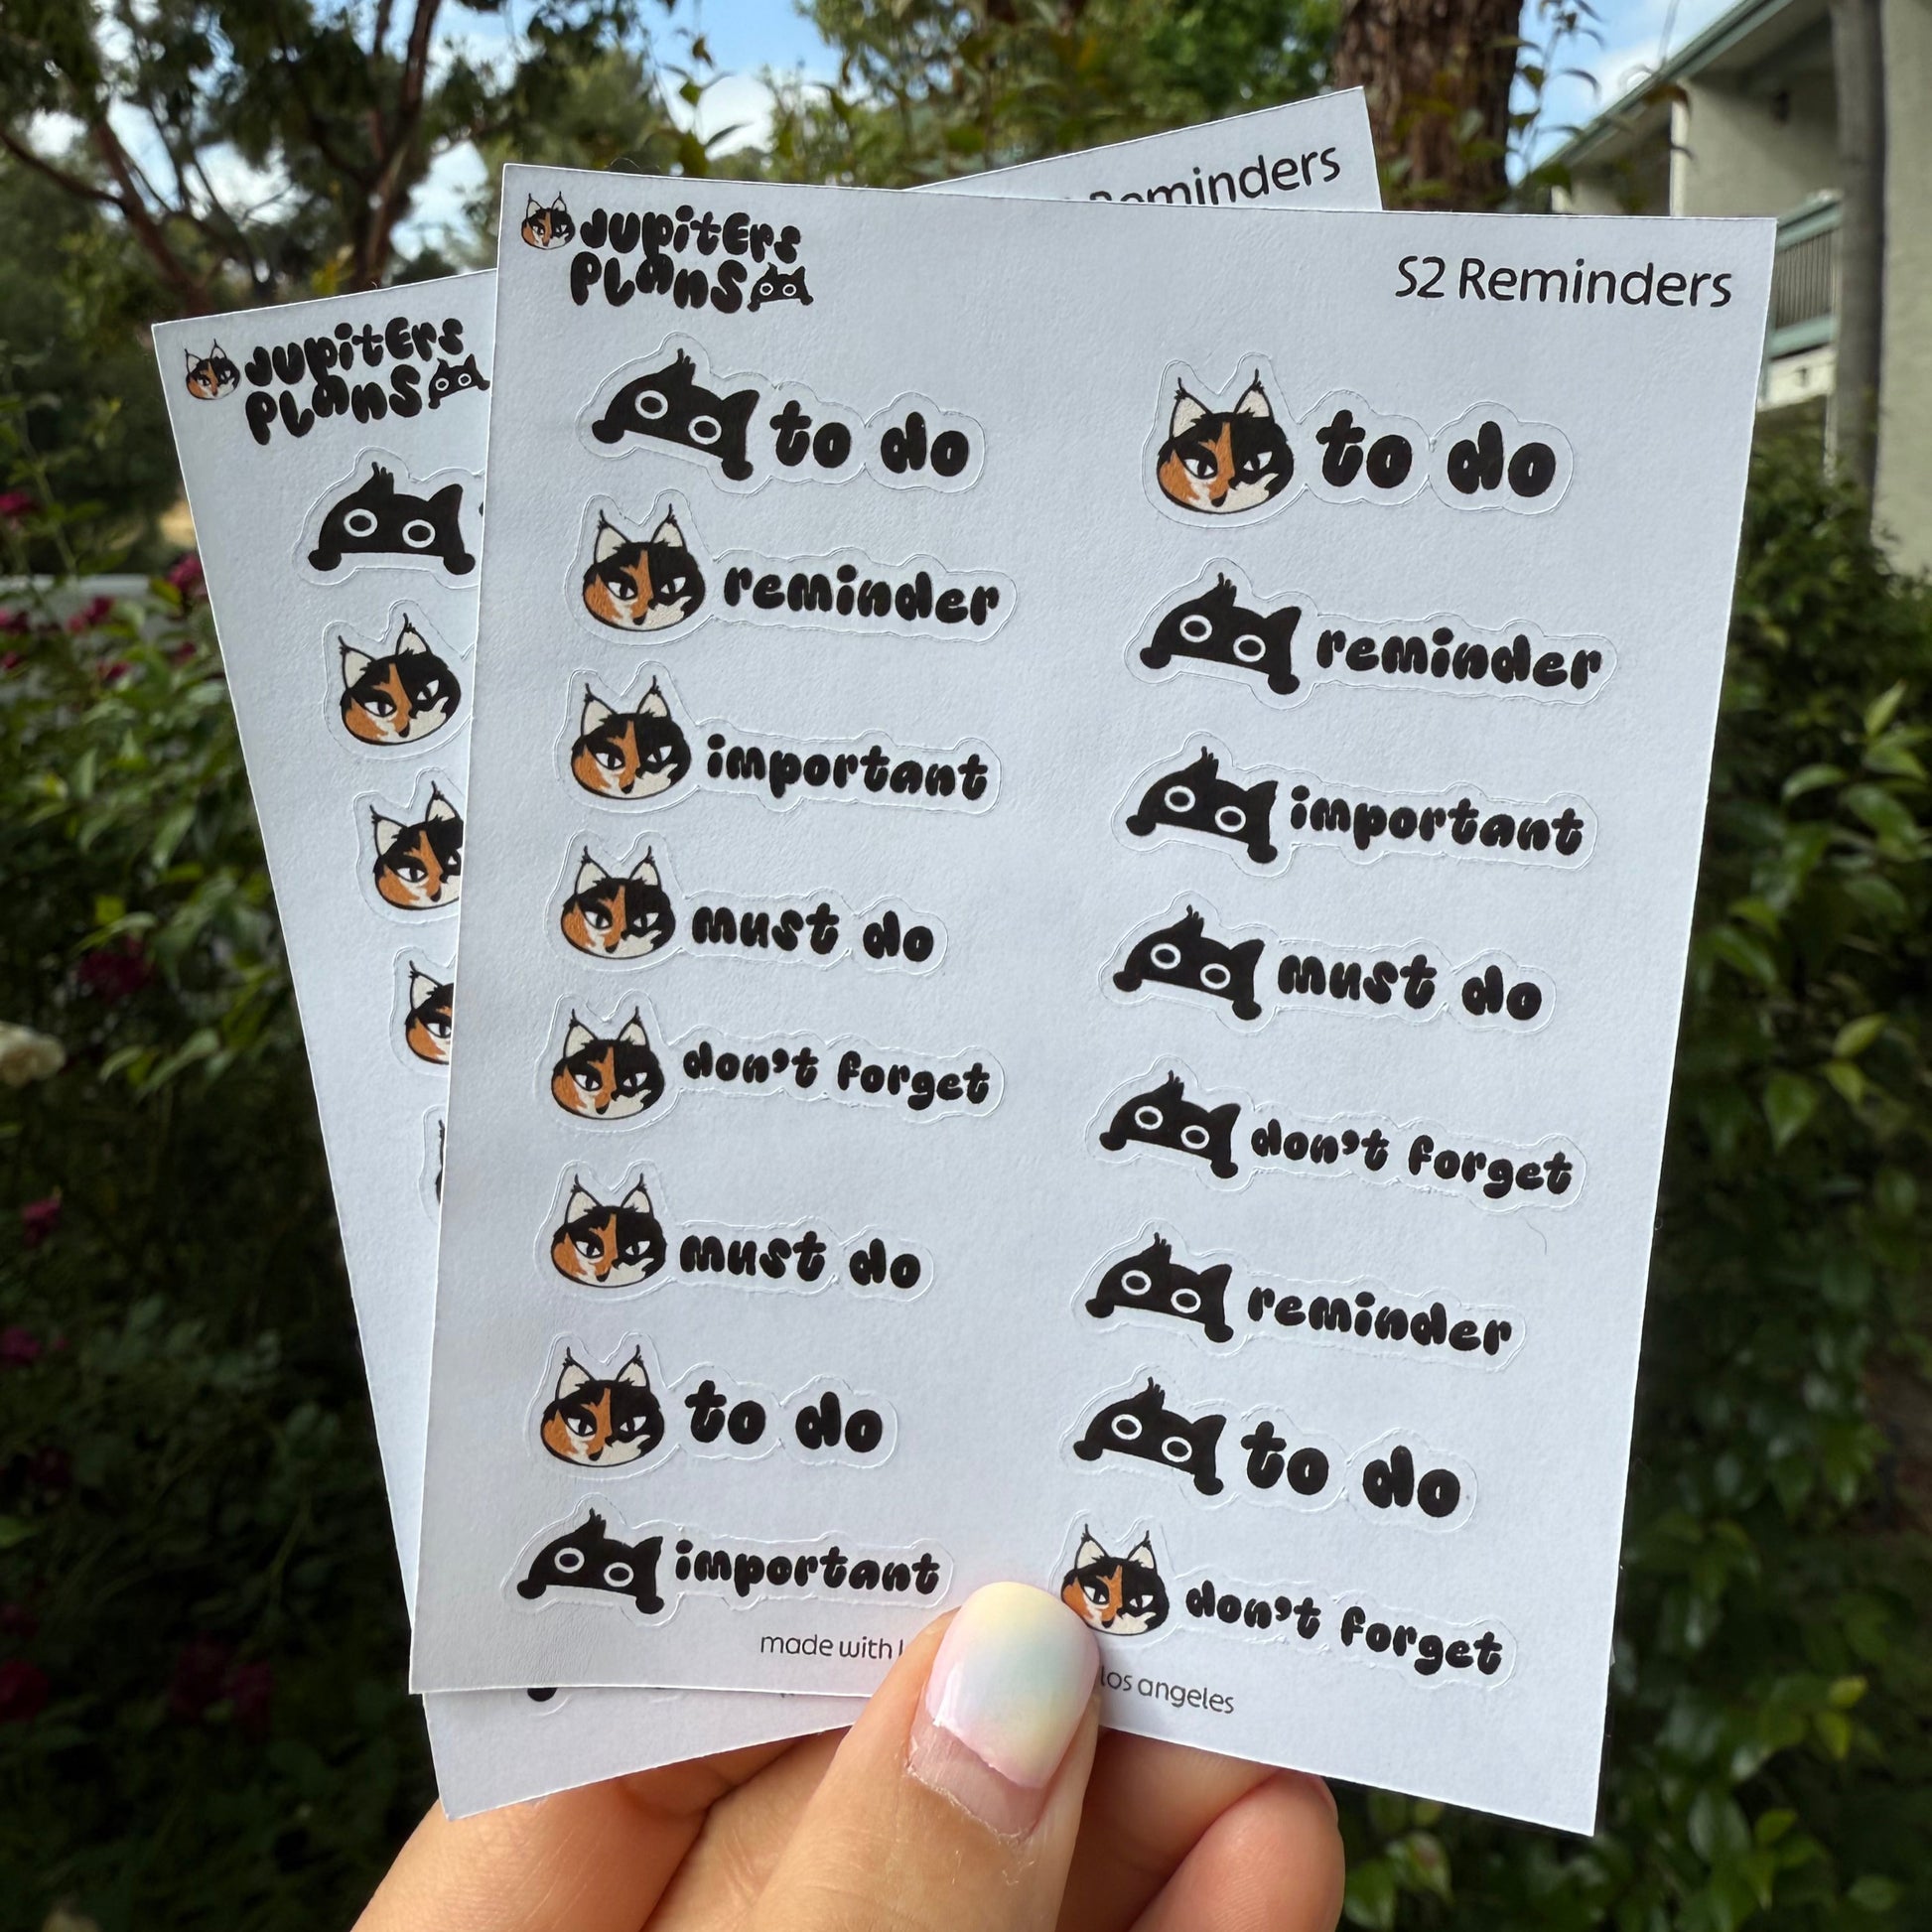 Reminders
Jupiters
Plans
S2 Reminders
Jupiters
Plans
to do
to do
reminder
reminder
important
important
must do
must do
don't forget
don't forget
must do
reminder
to do
to do
important
don't forget
made with
los angeles